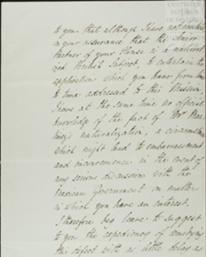 to you that although I have not
in your assurance that the Senior
Partner of your House is a naturalized
British Subject, to entertain the
application which you have from time
to time addressed to this Mission,
I have at the same time no official
knowledge of the fact of
naturalization, a circumstance
which might lead to embarrassment
and inconvenience in the event of
any serious discussion with the
Government on matters
in which you have an interest.
I therefore beg leave to suggest
to you the expediency of
this defect with as little delay as